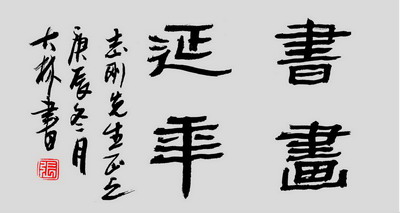 書畫
延年
志刚先生正之
庚辰冬月
大林書
張